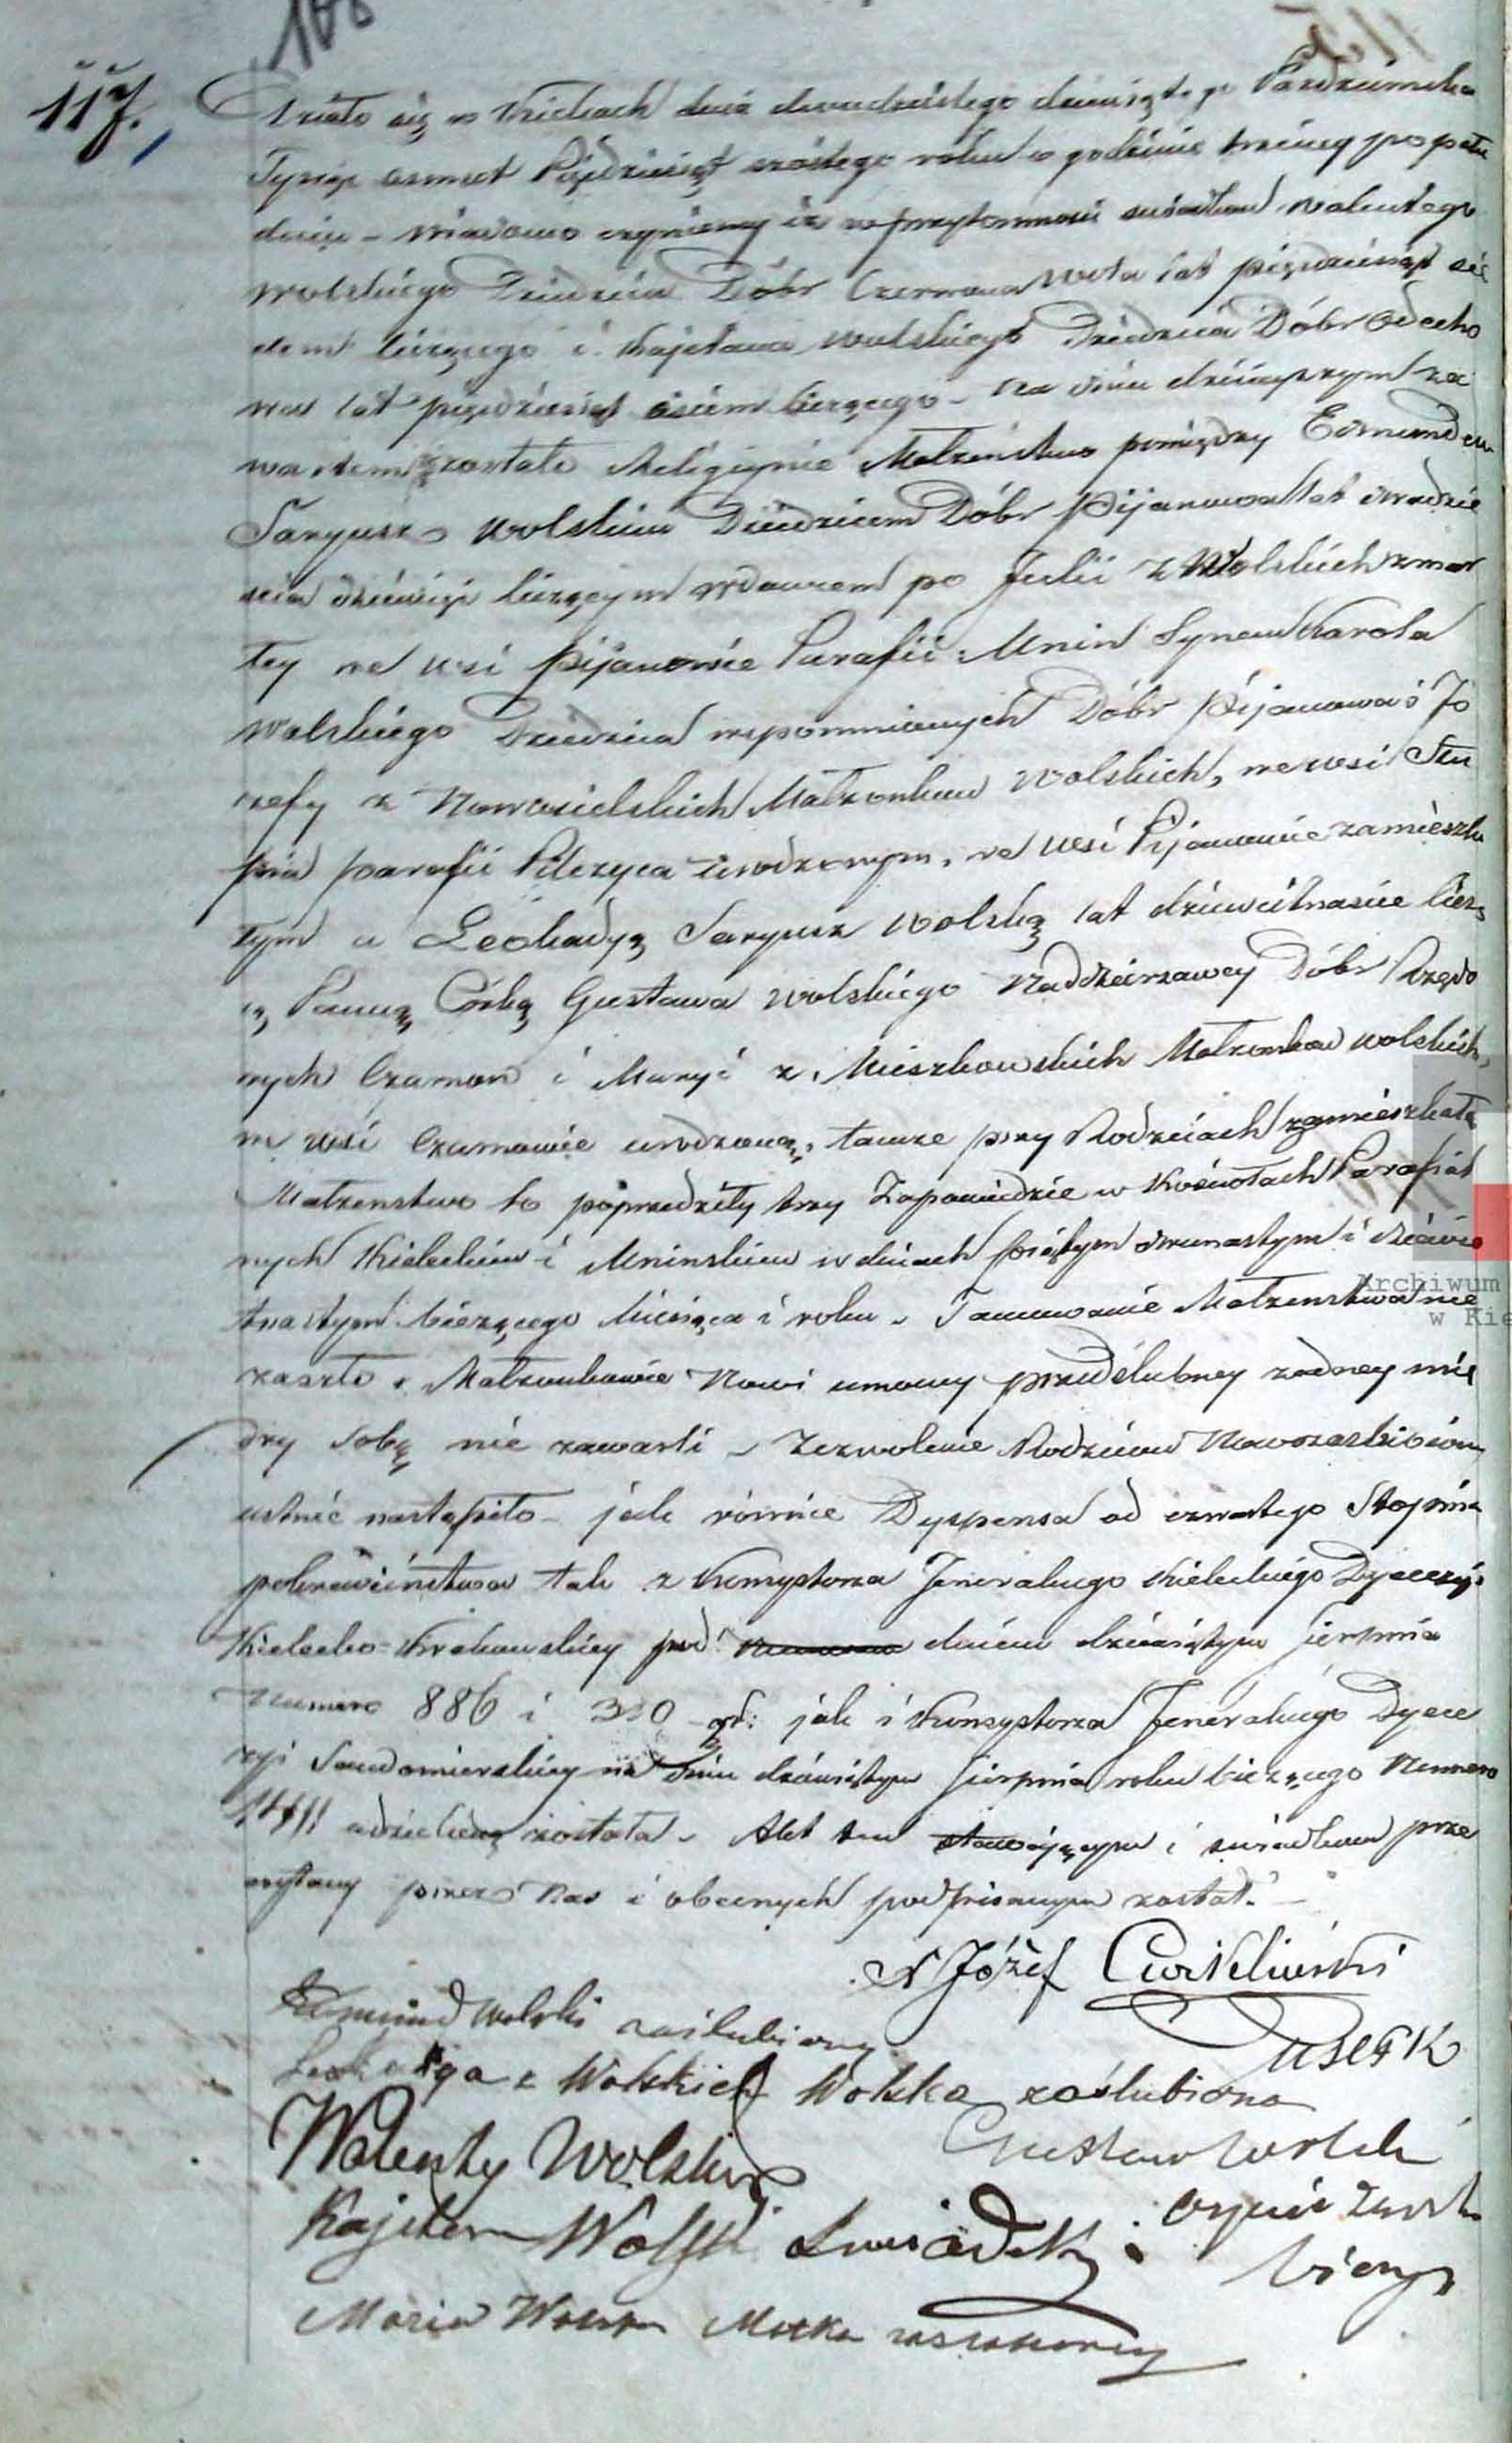 117.
Działo się w Kielcach dnia dwudziestego dziewiątego Października
Tysiąc osmset Pięćdziesiąt szóstego roku o godzinie trzeciey po połu
dniu – wiadomo czyniemy iż w przytomności świadków Walentego
Wolskiego Dziedzica Dóbr Czermna Wola lat pięćdziesiąt sie
dem liczącego i Kajetana Wolskiego Dziedzica Dóbr
lat pięćdziesiąt osiem liczącego – na dniu dzisiejszym za
warte zostało Religijnie Małżeństwo pomiędzy Edmundem
Saryusz Wolskim Dziedzicem Dóbr Pijanowa lat dwadzie
ścia dziewięć liczącym wdowcem po Julii z Wolskich zmar
łey we wsi Pijanowie Parafii Mnin Synem Karola
Wolskiego Dziedzica wspomnionych Dóbr Pijanowa i Jó
zefy z Nowosielskich Małżonków Wolskich, we wsi Stu
pia parafii Pilczyca urodzonym, we wsi Pijanowie zamieszka
łym a Leokadyą Saryusz Wolską lat dziewiętnaście liczą
cą Panną Córką Gustawa Wolskiego Naddzierżawcy Dóbr Rządo
wych Czarnow i Maryi z Mieszkowskich Małżonków Wolskich,
w wsi Czarnowie urodzoną, tamże przy Rodzicach zamieszkałą
Małżeństwo to poprzedziły trzy Zapowiedzie w Kościołach Parafial
nych Kieleckim i Mninskim w dniach piątym dwunastym i dziewię
tnastym bieżącego Miesiąca i roku – Tamowanie Małżeństwa nie
zaszło. Małżonkowie Nowi umowy przedślubney żadney mię
dzy sobą nie zawarli – Zezwolenie Rodziców Nowozaślubionym
ustnie nastąpiło – jak równie Dyspensa od czwartego Stopnia
pokrewieństwa tak z Konsystorza Jeneralnego Kieleckiego Dyecezyi
Kielecko-Krakowskiey pod dniem dziewiątym sierpnia
Numero 886 i jak i Konsystorza Jeneralnego Dyece
zyi Sandomierskiey na dniu dziewiątym sierpnia roku bieżącego Numero
udzieloną została – Akt ten stawającym i świadkom prze
czytany przez Nas i obecnych podpisanym został. –
X Józef Ćwikliński
Edmund Wolski zaślubiony
z Wolskich Wolska zaślubiona
Walenty Wolski
Gustaw Wolski
Kajetan Wolski Świadek
Maria Wolska Matka